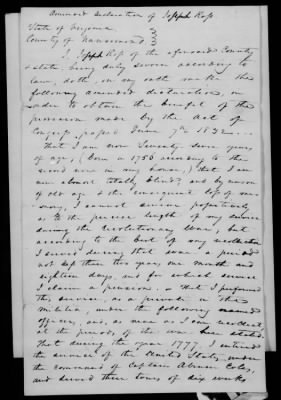 Amended Declaration of Joseph Ross
State of Virginia
County of Nansemond
I, Joseph Ross of the aforesaid County
& state being duly sworn according to
law, doth, on my oath make the
following amended declaration, in
order to obtain the benefit of the
provision made by the Act of
Congress, passed June 7th 1832
That I am now Seventy seven years
of age, (born in 1756 according to the
record now in my house,) that I am
now almost totally blind, and by reason
of old age & the consequent loss of me-
mory, I cannot swear positively
as to the precise length of my service
during the revolutionary war, but
according to the best of my recollection
I served during that war a period
not less than two years, one month and
eighteen days, and for which service
I claim a pension. That I performed
this service, as a private in the
Militia, under the following named
officers, and, as near as I can recollect
at the periods, of the war here stated
that during the year 1777, I entered
the service of the United States, under
the command of Captain
and served three tours of six weeks